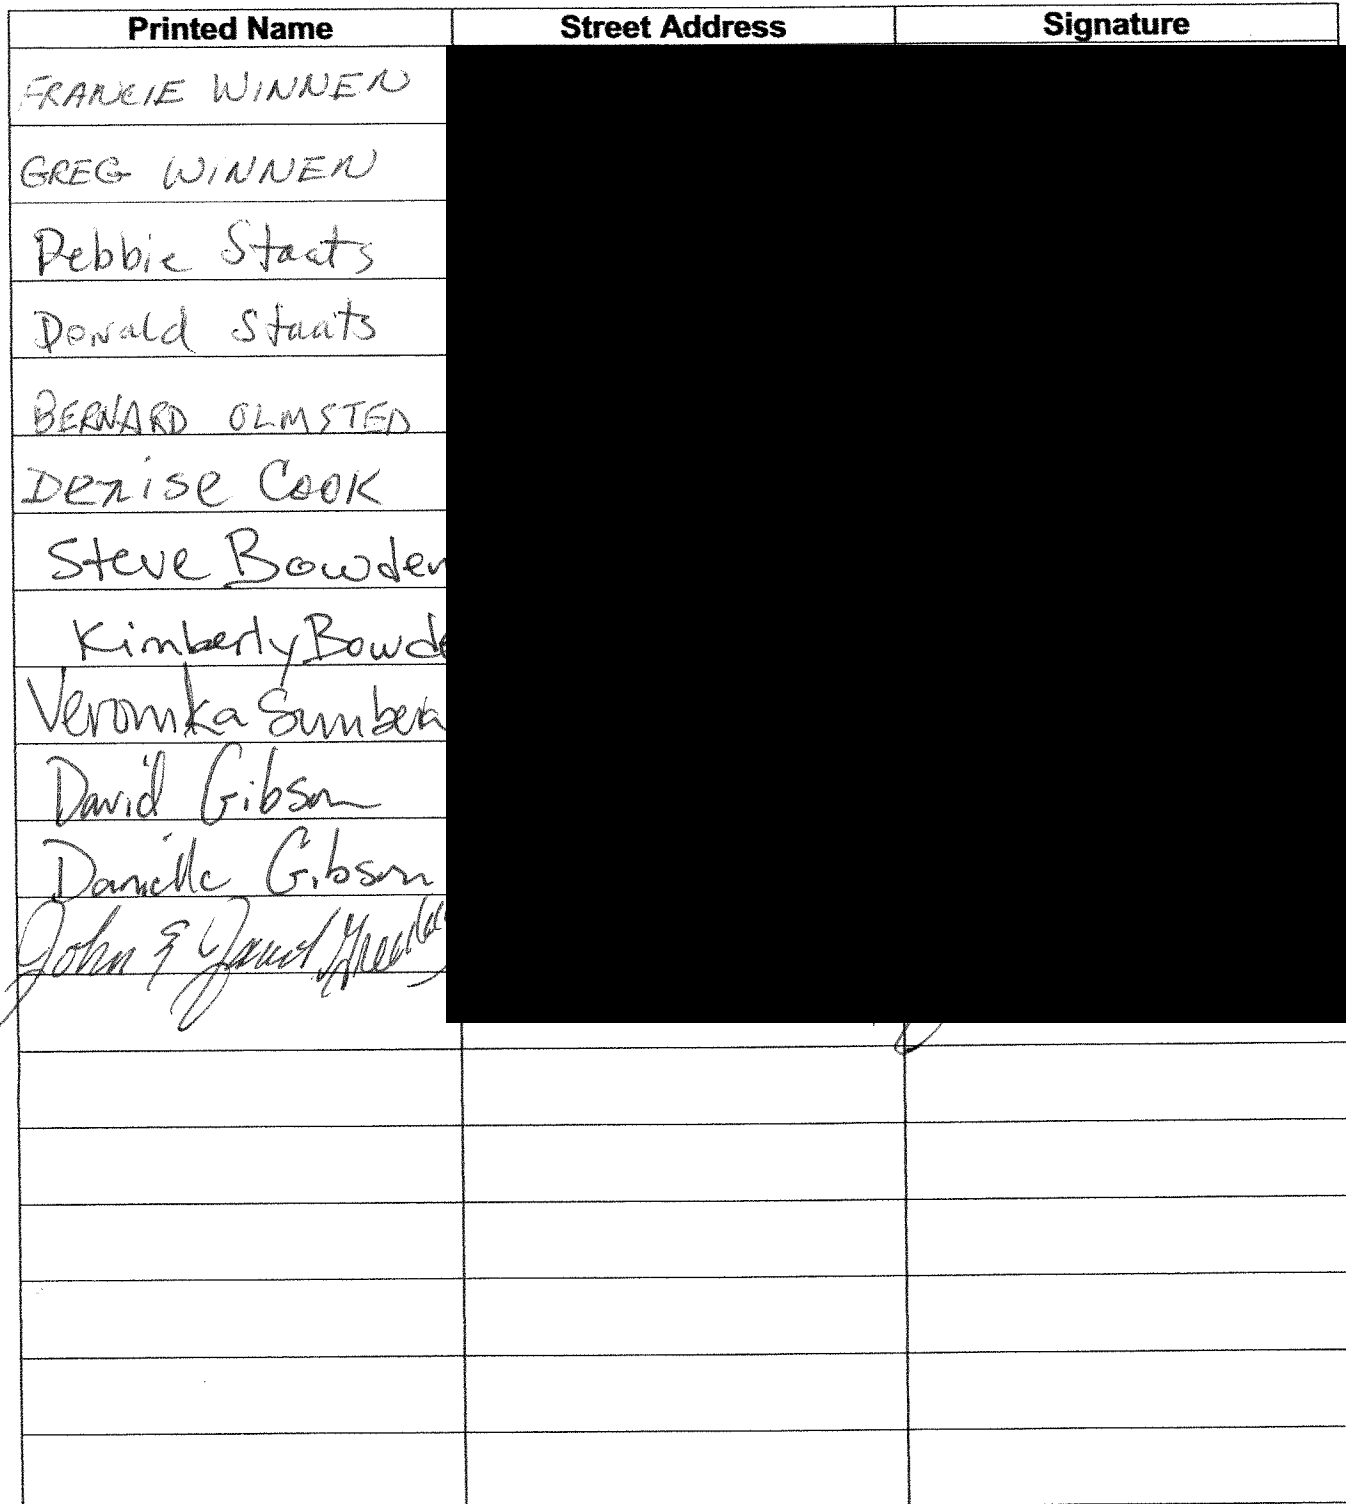 Printed Name Street Address Signature
FRANCIE WINNEN
GREG WINNEN
Debbie Staats
Donald Staats
BERNARD OLMSTED
Denise Cook
Steve Bowden
Kimberly Bowde
Veronika Sumbera
David Gibson
Danielle Gibson
John & Janet